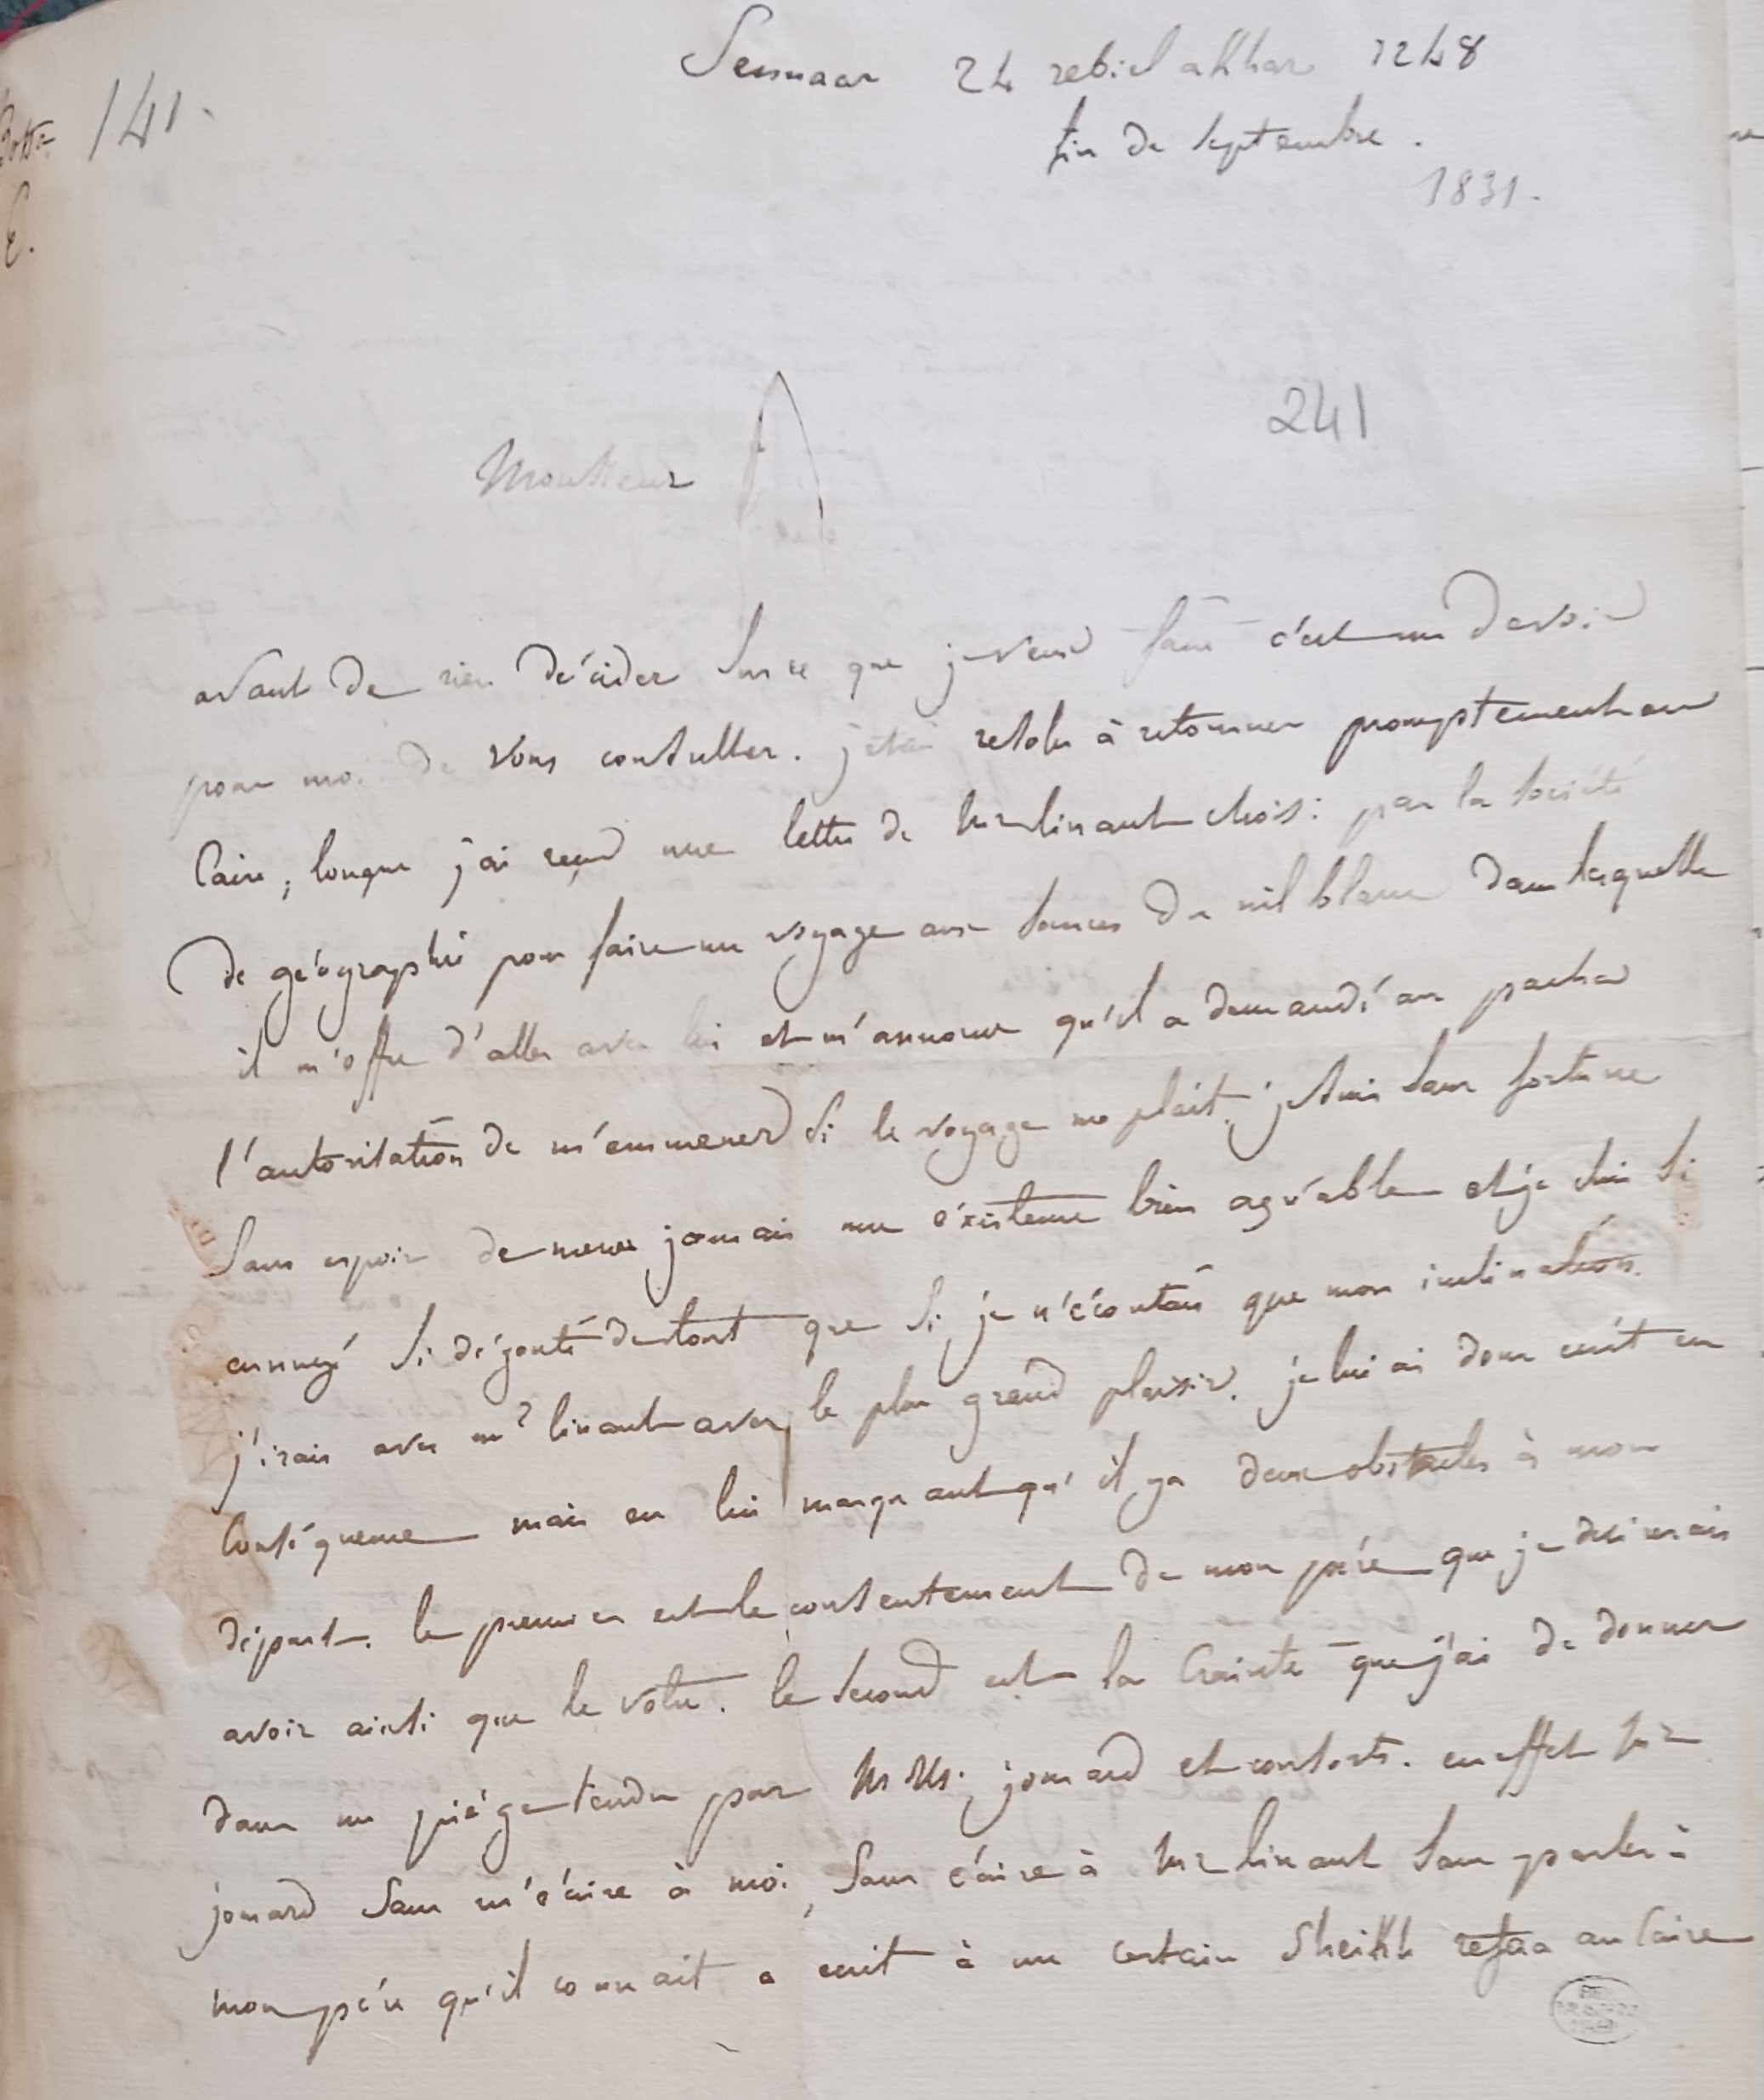 Sennaar 24 rebiel akhar 1248
fin de septembre.
1831.
Botta
141.
E.
241
Monsieur
avant de rien décider sur ce que je veux faire c'est un devoir
pour moi de vous consulter. j'étais resolu à retourner promptement au
Caire, lorsque j'ai reçu une lettre de Mr linant choisi par la société
de géographie pour faire un voyage aux sources du nil blanc dans laquelle
il m'offre d'aller avec lui et m'annonce qu'il a demandé au pacha
l'autorisation de m'emmener si le voyage me plait. je suis sans fortune
sans espoir de mener jamais une éxistence bien agréable et je suis si
ennuyé si dégouté de tout que si je n'écoutais que mon inclination.
j'irais avec mr linant avec le plus grand plaisir. je lui ai donc écrit en
conséquence mais en lui marquant qu'il y a deux obstacles à mon
départ. le premier est le consentement de mon père que je desirerais
avoir ainsi que le votre. le second est la crainte que j'ai de donner
dans un piége tendu par MM. jomard et consorts. en effet Mr
jomard sans m'écrire à moi, sans écrire à Mr linant sans parler à
mon pére qu'il connait a ecrit à un certain Sheikh refaa au Caire